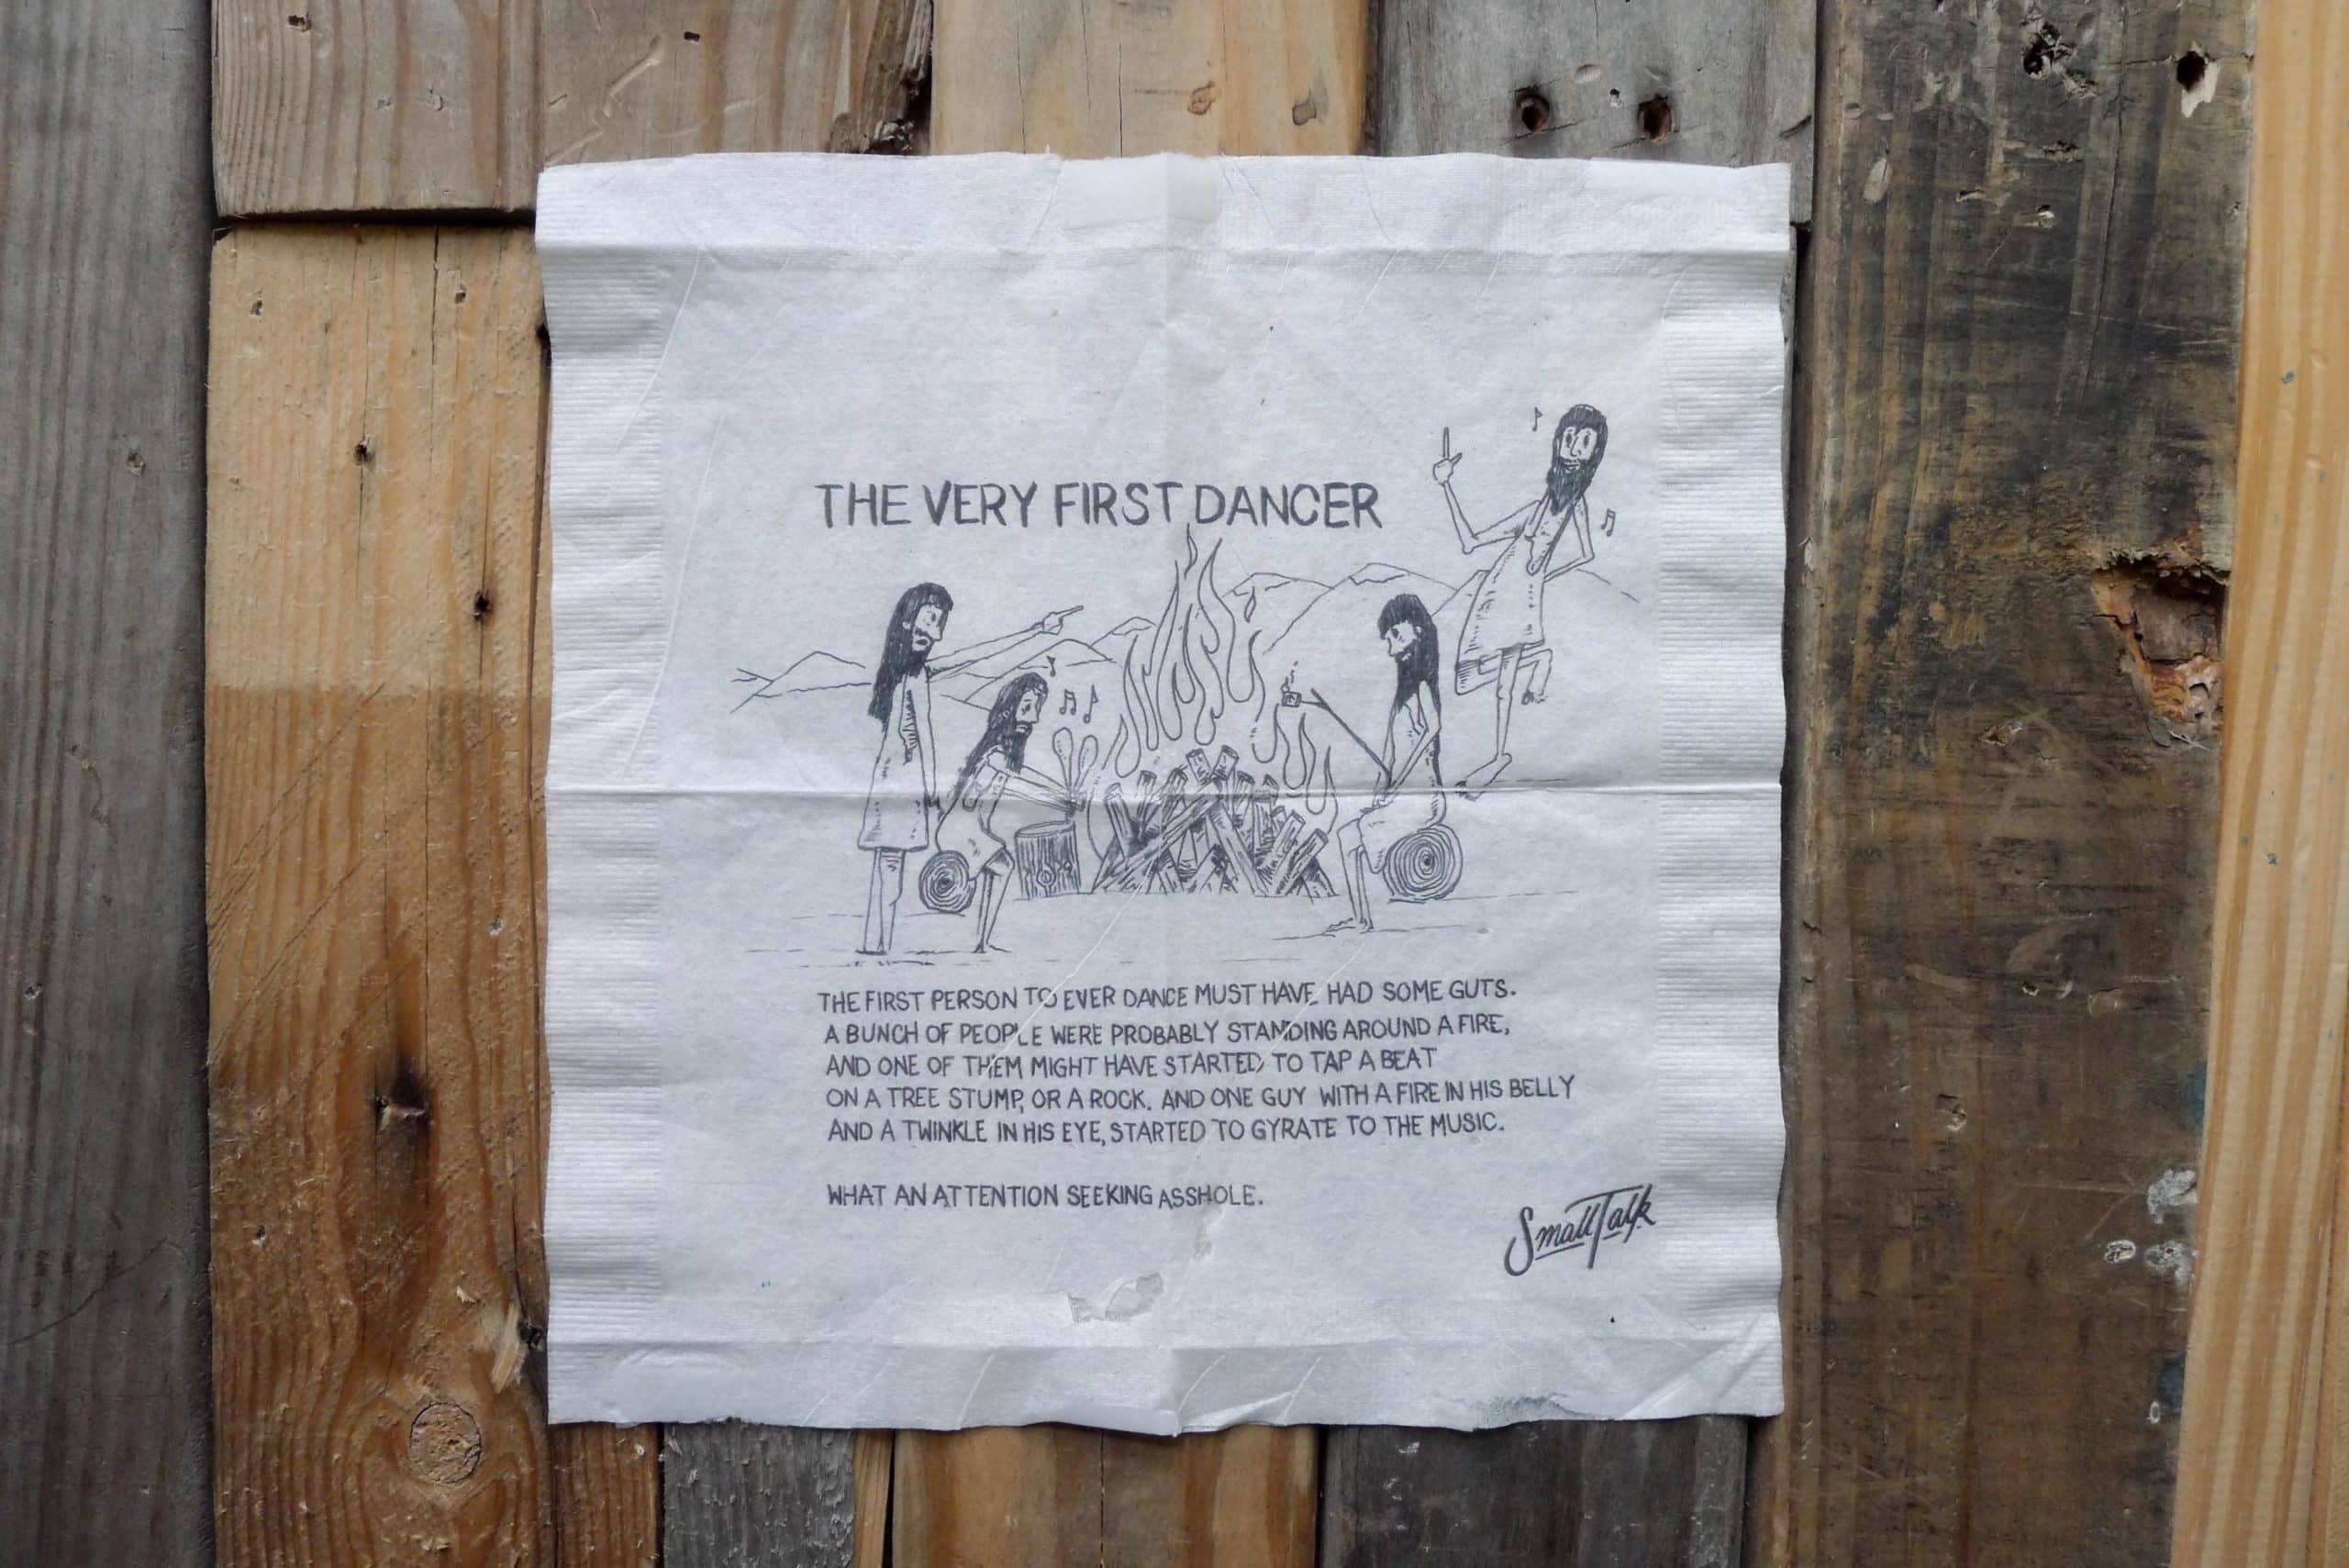 THE VERY FIRST DANCER
THE FIRST PERSON TO EVER DANCE MUST HAVE HAD SOME GUTS.
A BUNCH OF PEOPLE WERE PROBABLY STANDING AROUND A FIRE,
AND ONE OF THEM MIGHT HAVE STARTED TO TAP A BEAT
ON A TREE STUMP, OR A ROCK. AND ONE GUY WITH A FIRE IN HIS BELLY
AND A TWINKLE IN HIS EYE, STARTED TO GYRATE TO THE MUSIC.
WHAT AN ATTENTION SEEKING ASSHOLE.
SmallTalk